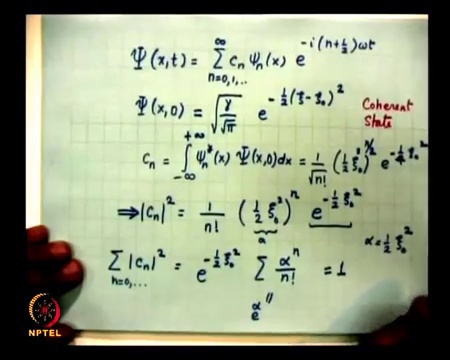 Ψ(x,t) = Σ_{n=0,1,..}^{∞} c_n ψ_n(x) e^{-i(n+½)ωt}
Ψ(x,0) = √(γ/√π) e^{-½(ξ-ξ₀)²}
Coherent State
c_n = ∫_{-∞}^{+∞} ψ_n*(x) Ψ(x,0)dx = 1/√n! (½ξ₀²)^{n/2} e^{-¼ξ₀²}
⇒|c_n|² = 1/n! (½ξ₀²)^n e^{-½ξ₀²}
α
α = ½ξ₀²
Σ_{n=0,...} |c_n|² = e^{-½ξ₀²} Σ α^n/n! = 1
e^α
NPTEL